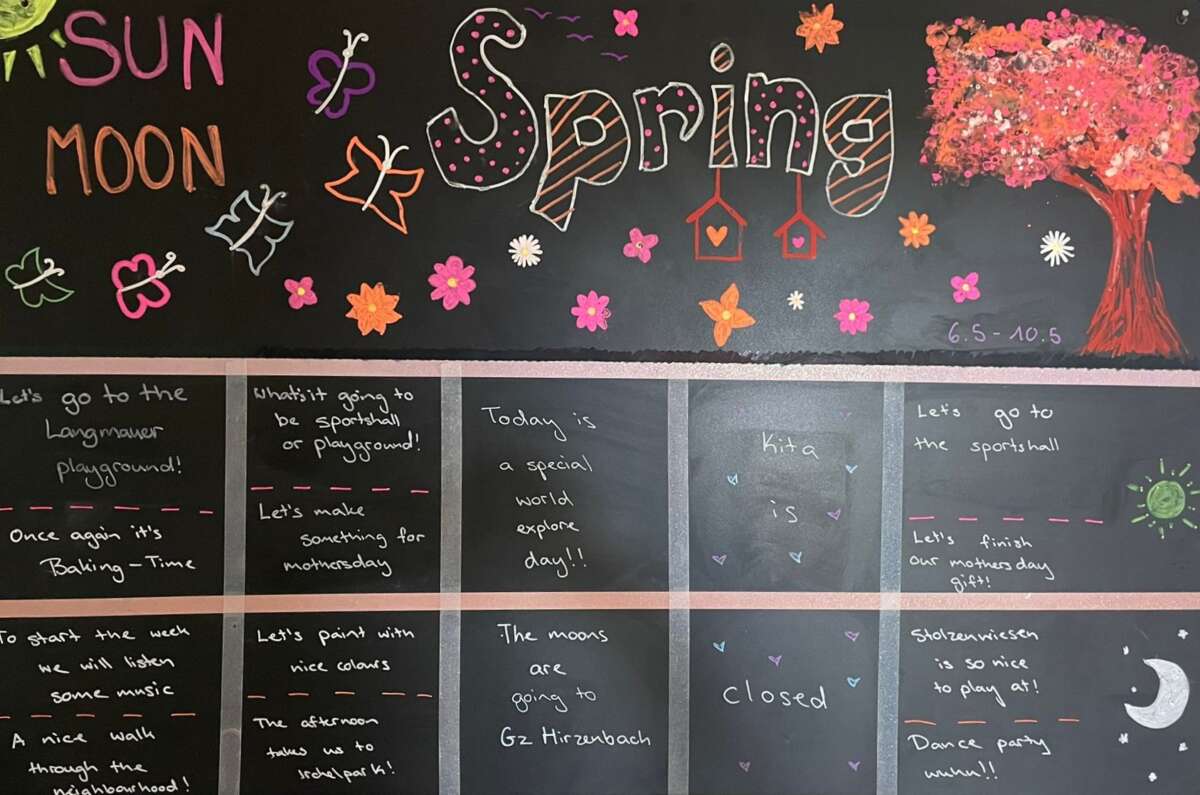 SUN
MOON
Spring
6.5 - 10.5
Let's go to the
Langmauer
playground!
Once again it's
Baking - Time
What's it going to
be sportshall
or playground!
Let's make
something for
mothersday
Today is
a special
world
explore
day!!
Kita
is
Let's go to
the sportshall
Let's finish
our mothersday
gift!
To start the week
we will listen
some music
A nice walk
through the
neighbourhood!
Let's paint with
nice colours
The afternoon
takes us to
Irchelpark!
The moons
are
going to
Gz Hirzenbach
closed
Stolzenwiesen
is so nice
to play at!
Dance party
wuhu!!